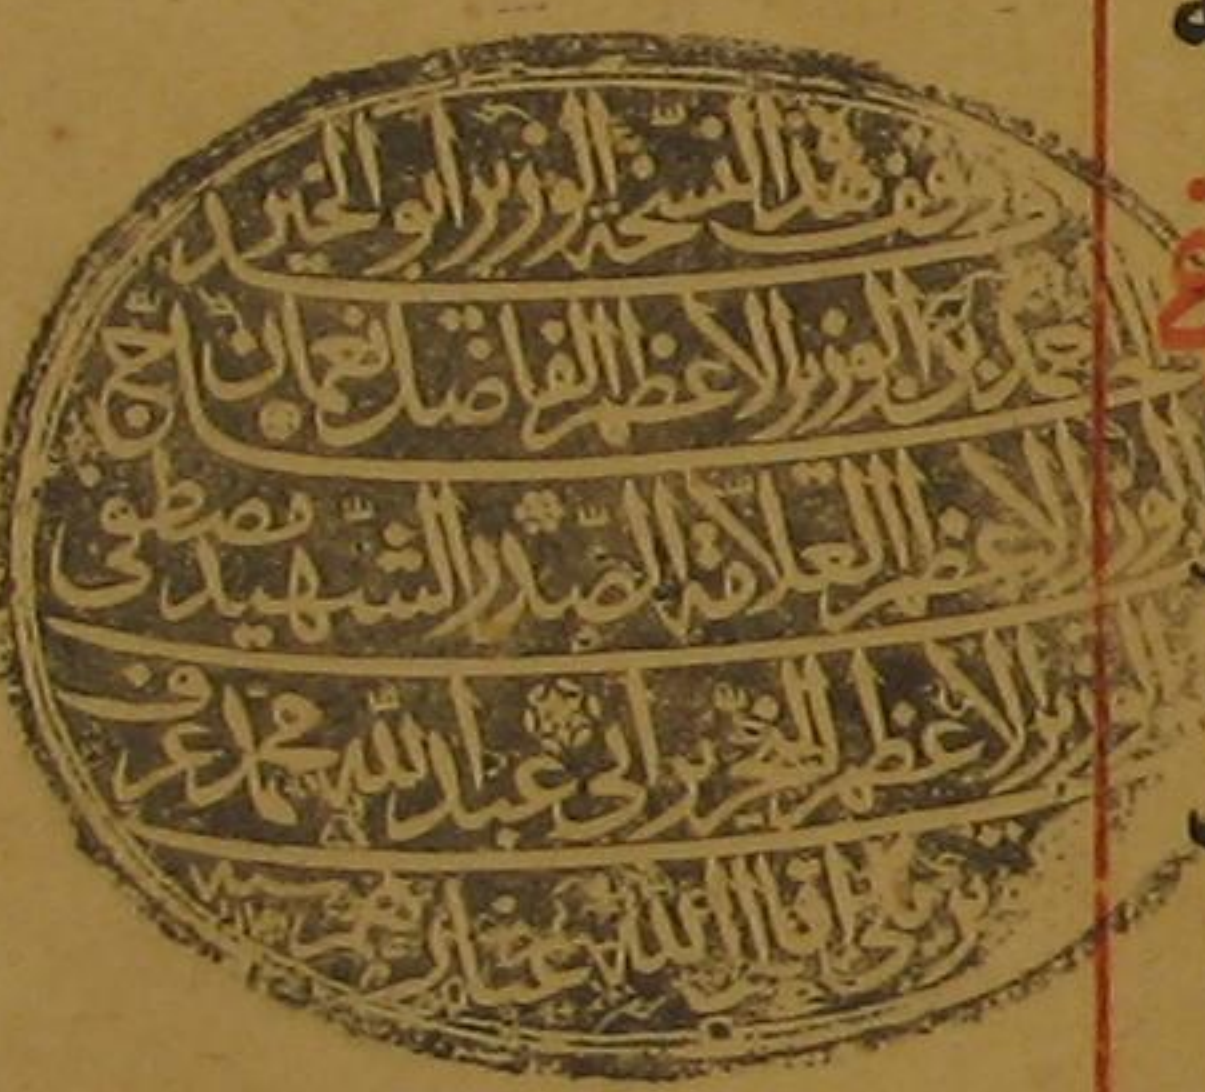 وقف هذا النسخة الوزير ابو الخير
احمد بن الوزير الاعظم الفاضل نعمان بن
الوزير الاعظم العلامة الصدر الشهيد مصطفى
الوزير الاعظم النحرير ابي عبد الله محمد عرف
بكوپريلي اقال الله عثارهم